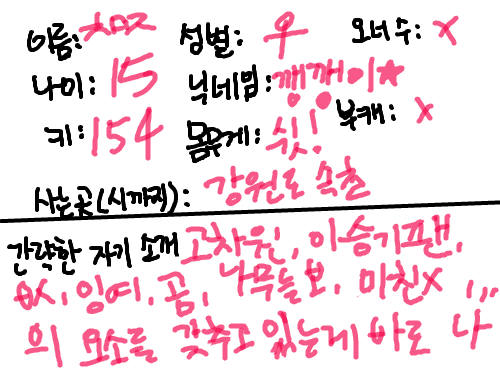 이름: ㅊㅁㅈ 성별: 우 오너수: x
나이: 15 닉네임: 깽깽이☆
키: 154 몸무게: 쉿! 부캐: x
사는곳(시까지): 강원도 속초
간략한 자기 소개 고차원, 이승기팬,
잉여, 곰, 나무늘보, 미친x ,,,
의 요소들 갖추고 있는게 바로 나